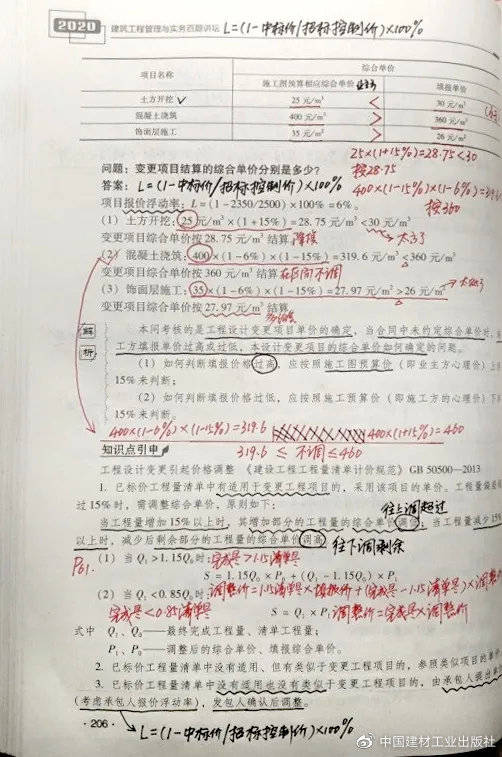 2020 建筑工程管理与实务百题讲坛 L=(1-中标价/招标控制价)×100%
项目名称 综合单价
施工图预算相应综合单价 业主 填报单价
土方开挖 ✓ 25 元/m³ < 30 元/m³
混凝土浇筑 400 元/m³ > 360 元/m³
饰面层施工 35 元/m² > 26 元/m²
25×(1+15%)=28.75<30
问题：变更项目结算的综合单价分别是多少？ 按28.75
答案：L=(1-中标价/招标控制价)×100% 400×(1-15%)×(1-6%)=319.6
项目报价浮动率：L=(1-2350/2500)×100%=6%。 按360
(1) 土方开挖：25元/m³×(1+15%)=28.75 元/m³<30 元/m³
变更项目综合单价按 28.75 元/m³ 结算
(2) 混凝土浇筑：400×(1-6%)×(1-15%)=319.6 元/m³<360 元/m³
变更项目综合单价按 360 元/m³ 结算 在区间不调
(3) 饰面层施工：35×(1-6%)×(1-15%)=27.97 元/m²>26 元/m²
变更项目综合单价按 27.97 元/m² 结算
解析
本问考核的是工程设计变更项目单价的确定，当合同中未约定综合单价时，
工方填报单价过高或过低，本设计变更项目的综合单价如何确定的问题。
(1) 如何判断填报价格过高，应按照施工图预算价（即业主方心理价）上
15%来判断；
(2) 如何判断填报价格过低，应按照施工预算价（即施工方的心理价）下
15%来判断。
400×(1-6%)×(1-15%)=319.6 400×(1+15%)=460
知识点引申 319.6 ≤ 不调 ≤460
工程设计变更引起价格调整 《建设工程工程量清单计价规范》GB 50500—2013
1. 已标价工程量清单中有适用于变更工程项目的，采用该项目的单价。工程量偏差
过 15%时，需调整综合单价，原则如下： 往上调超过
当工程量增加 15%以上时，其增加部分的工程量的综合单价调低；当工程量减少 15%
以上时，减少后剩余部分的工程量的综合单价调高 往下调剩余
(1) 当 Q₁>1.15Q₀ 时：完成量>1.15清单量
S=1.15Q₀×P₀+(Q₁-1.15Q₀)×P₁
(2) 当 Q₁<0.85Q₀ 时：调整价=1.15清单量×填报价+(完成量-1.15清单量)×调整价
完成量<0.85清单量 S=Q₁×P₁ 调整价=完成量×调整价
式中 Q₁、Q₀——最终完成工程量、清单工程量；
P₁、P₀——调整后的综合单价、填报综合单价。
2. 已标价工程量清单中没有适用、但有类似于变更工程项目的，参照类似项目的单价
3. 已标价工程量清单中没有适用也没有类似于变更工程项目的，由承包人提出单
(考虑承包人报价浮动率)，发包人确认后调整。
· 206 · L=(1-中标价/招标控制价)×100%
中国建材工业出版社